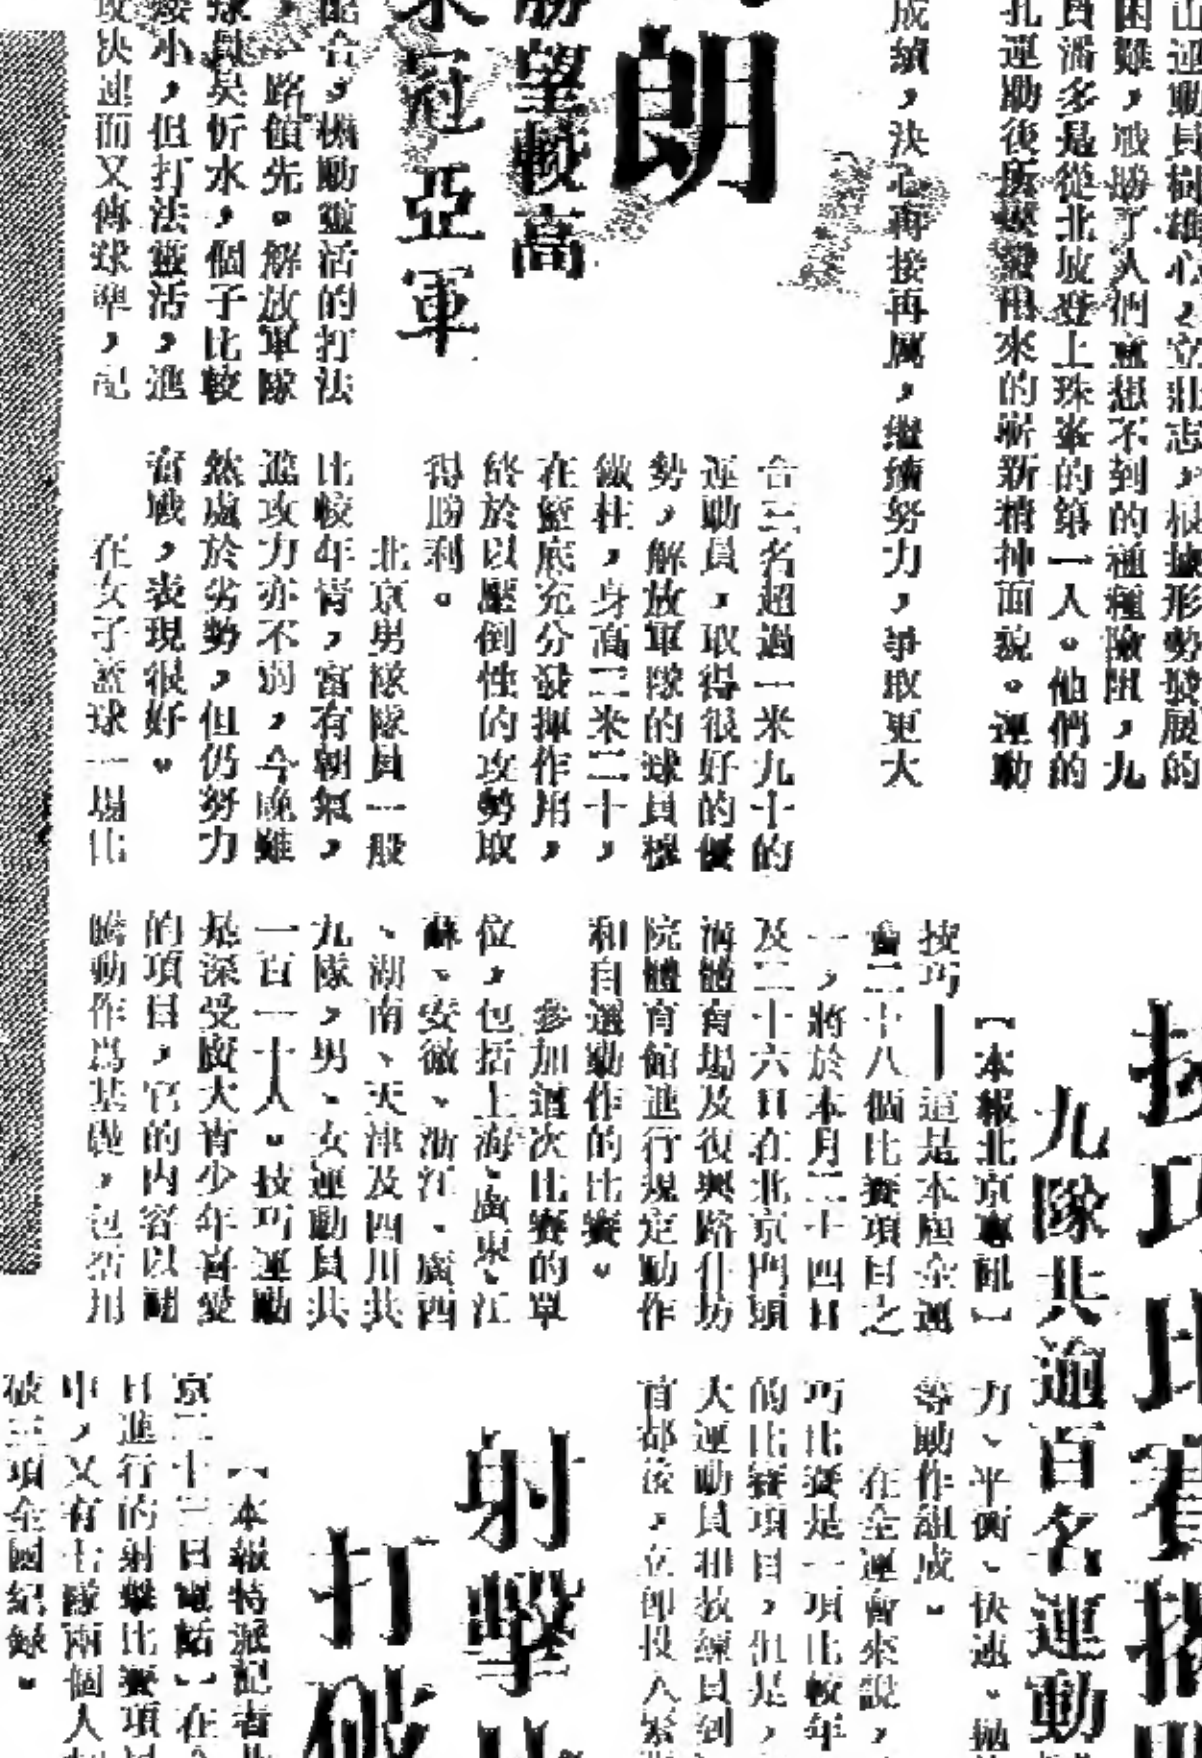 山運動員樹雄心，立壯志，根據形勢發展的
困難，戰勝了人們意想不到的種種險阻，九
員潘多是從北坡登上珠峯的第一人。他們的
孔運動後所煥發出來的嶄新精神面貌。運動
成績，決心再接再厲，繼續努力，爭取更大
朗
勝望較高
冠亞軍
配合，機動靈活的打法
，一路領先。解放軍隊
球員吳忻水，個子比較
矮小，但打法靈活，進
攻快速而又傳球準，配
合三名超過一米九十的
運動員，取得很好的優
勢，解放軍隊的球員穆
鐵柱，身高二米二十，
在籃底充分發揮作用，
終於以壓倒性的攻勢取
得勝利。
北京男隊隊員一般
比較年青，富有朝氣，
進攻力亦不弱，今晚雖
然處於劣勢，但仍努力
奮戰，表現很好。
在女子籃球一場比
技巧比賽
九隊共逾百名運動
【本報北京專訊】
技巧——這是本屆全運
會二十八個比賽項目之
一，將於本月二十四日
及二十六日在北京門頭
溝體育場及復興路什坊
院體育館進行規定動作
和自選動作的比賽。
參加這次比賽的單
位，包括上海、廣東、江
蘇、安徽、浙江、廣西
、湖南、天津及四川共
九隊，男、女運動員共
一百一十人。技巧運動
是深受廣大青少年喜愛
的項目，它的內容以翻
騰動作爲基礎，包括用
力、平衡、快速、拋
等動作組成。
在全運會來說，
巧比賽是一項比較年
的比賽項目，但是，
大運動員和教練員到
首都後，立即投入緊
射擊比
打破
【本報特派記者
京二十三日電話】在
日進行的射擊比賽項
中，又有七隊兩個人
破三項全國紀錄。